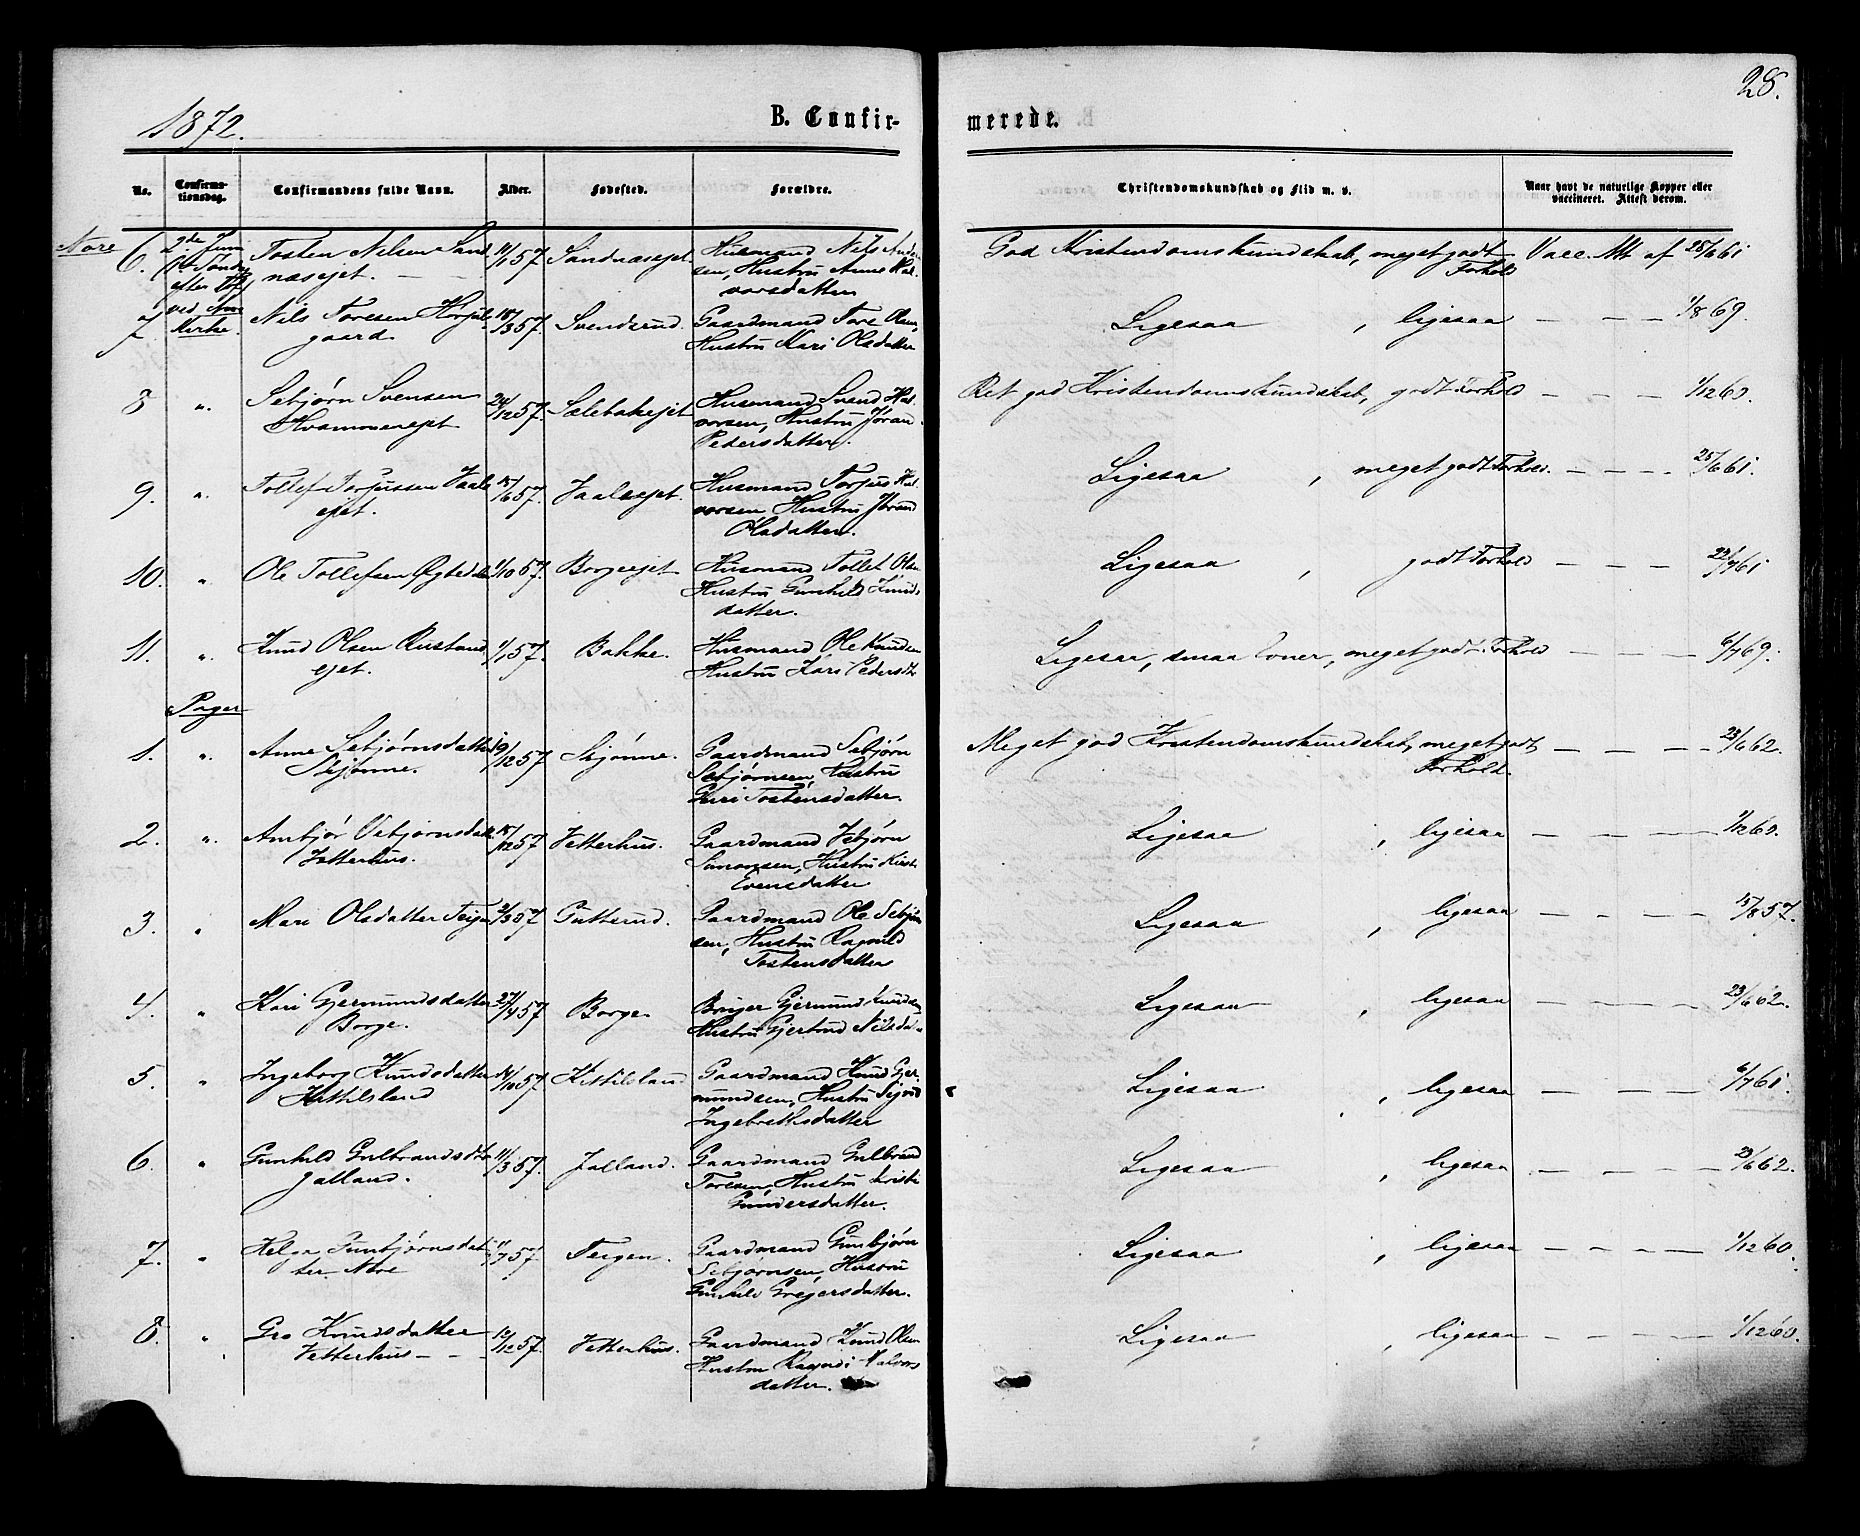 28.
1872.
B. Confirmerede.
No. Confirmationsdag. Confirmandens fulde Navn. Alder. Fødested. Forældre. Christendomskundskab og Flid m. v. Naar havt de naturlige Kopper eller vaccineret. Attest derom.
Nore
6. 2den Juni ved Nore Kirke Tosten Nilsen Sandnæsejet. 11/1 57 Sandnæsejet. Husmand Nils Andersen, Hustru Anne Halvorsdatter God Kristendomskundskab, meget godt Forhold Vacc. Att. af 25/6 61
7. Nils Toresen 18/3 57. Svendsrud. Gaardmand Tore Olsen, Hustru Kari Olsdatter Ligesaa, ligesaa — — — 1/8 69.
8 " Sebjørn Svensen Hvammenejet 24/12 57. Sælebakejet. Husmand Svend Halvorsen, Hustru Jøran Pedersdatter. Ret god Kristendomskundskab, godt Forhold — — — 1/12 60.
9. " Tollef Torjussen Vaaleejet. 15/6 57. Vaaleejet. Husmand Torjus Halvorsen, Hustru Jøran Olsdatter. Ligesaa, meget godt Forhold. — — — 25/6 61.
10. " Ole Tollefsen 1/10 57. Borgeejet Husmand Tollef Olsen Hustru Gunhild Knudsdatter. Ligesaa, godt Forhold — — — 22/7 61
11. " Knud Olsen Rustandejet. 1/1 57. Bakke. Husmand Ole Knudsen Hustru Kari Pedersdtr Ligesaa, smaa Evner, meget godt Forhold — — — 6/7 69.
Piger
1. " Anne Sebjørnsdatter Skjønne. 19/12 57 Skjønne. Gaardmand Sebjørn Sebjørnsen, Hustru Guri Tostensdatter. Meget god Kristendomskundskab, meget godt Forhold. — — — 23/6 62.
2. " Ambjør Vebjørnsdatter Vetterhus. 15/12 57 Vetterhus. Gaardmand Vebjørn Simonsen, Hustru Kirsti Evensdatter Ligesaa, ligesaa — — — 1/12 60.
3. " Mari Olsdatter Teigen 2/3 57 Gutterud. Gaardmand Ole Sebjørnsen, Hustru Ragnild Tostensdatter Ligesaa, ligesaa — — — 15/8 57.
4. " Kari Gjermundsdatter Borge. 27/4 57 Borge. Bruger Gjermund Knudsen Hustru Gjertrud Nilsdatter Ligesaa, ligesaa — — — 23/6 62.
5. " Ingeborg Knudsdatter Kittilsland 14/10 57. Kittilsland Gaardmand Knud Gjermundsen, Hustru Sigrid Ingebrethsdatter Ligesaa, ligesaa — — — 6/7 61.
6. " Gunhild Gulbrandsdtr Jalland. 11/3 57. Jalland. Gaardmand Gulbrand Toresen, Hustru Kirsti Gundersdatter. Ligesaa, ligesaa — — — 23/6 62.
7. " Helga Gunbjørnsdatter Nore 11/7 57 Teigen. Gaardmand Gunbjørn Sebjørnsen, Hustru Gunhild Gregersdatter. Ligesaa, ligesaa — — — 1/12 60.
8. " Gro Knudsdatter Vetterhus — — 12/12 57. Vetterhus. Gaardmand Knud Olsen Hustru Ragndi Halvorsdatter. Ligesaa, ligesaa — — — 1/12 60.